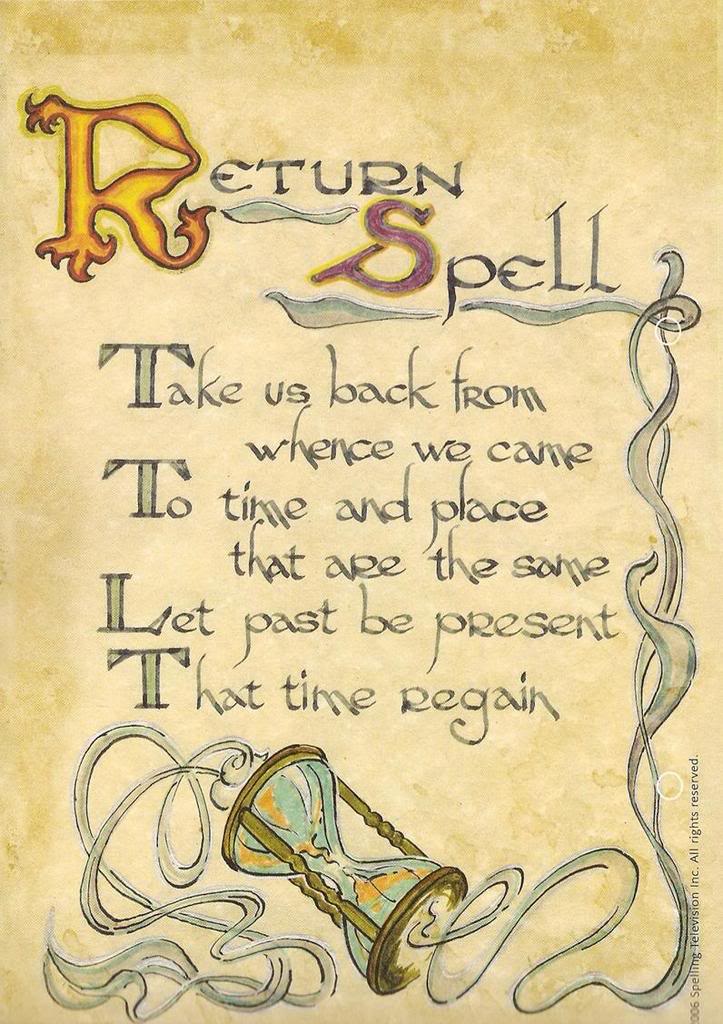 Return
Spell
Take us back from
whence we came
To time and place
that are the same
Let past be present
That time regain
006 Spelling Television Inc. All rights reserved.